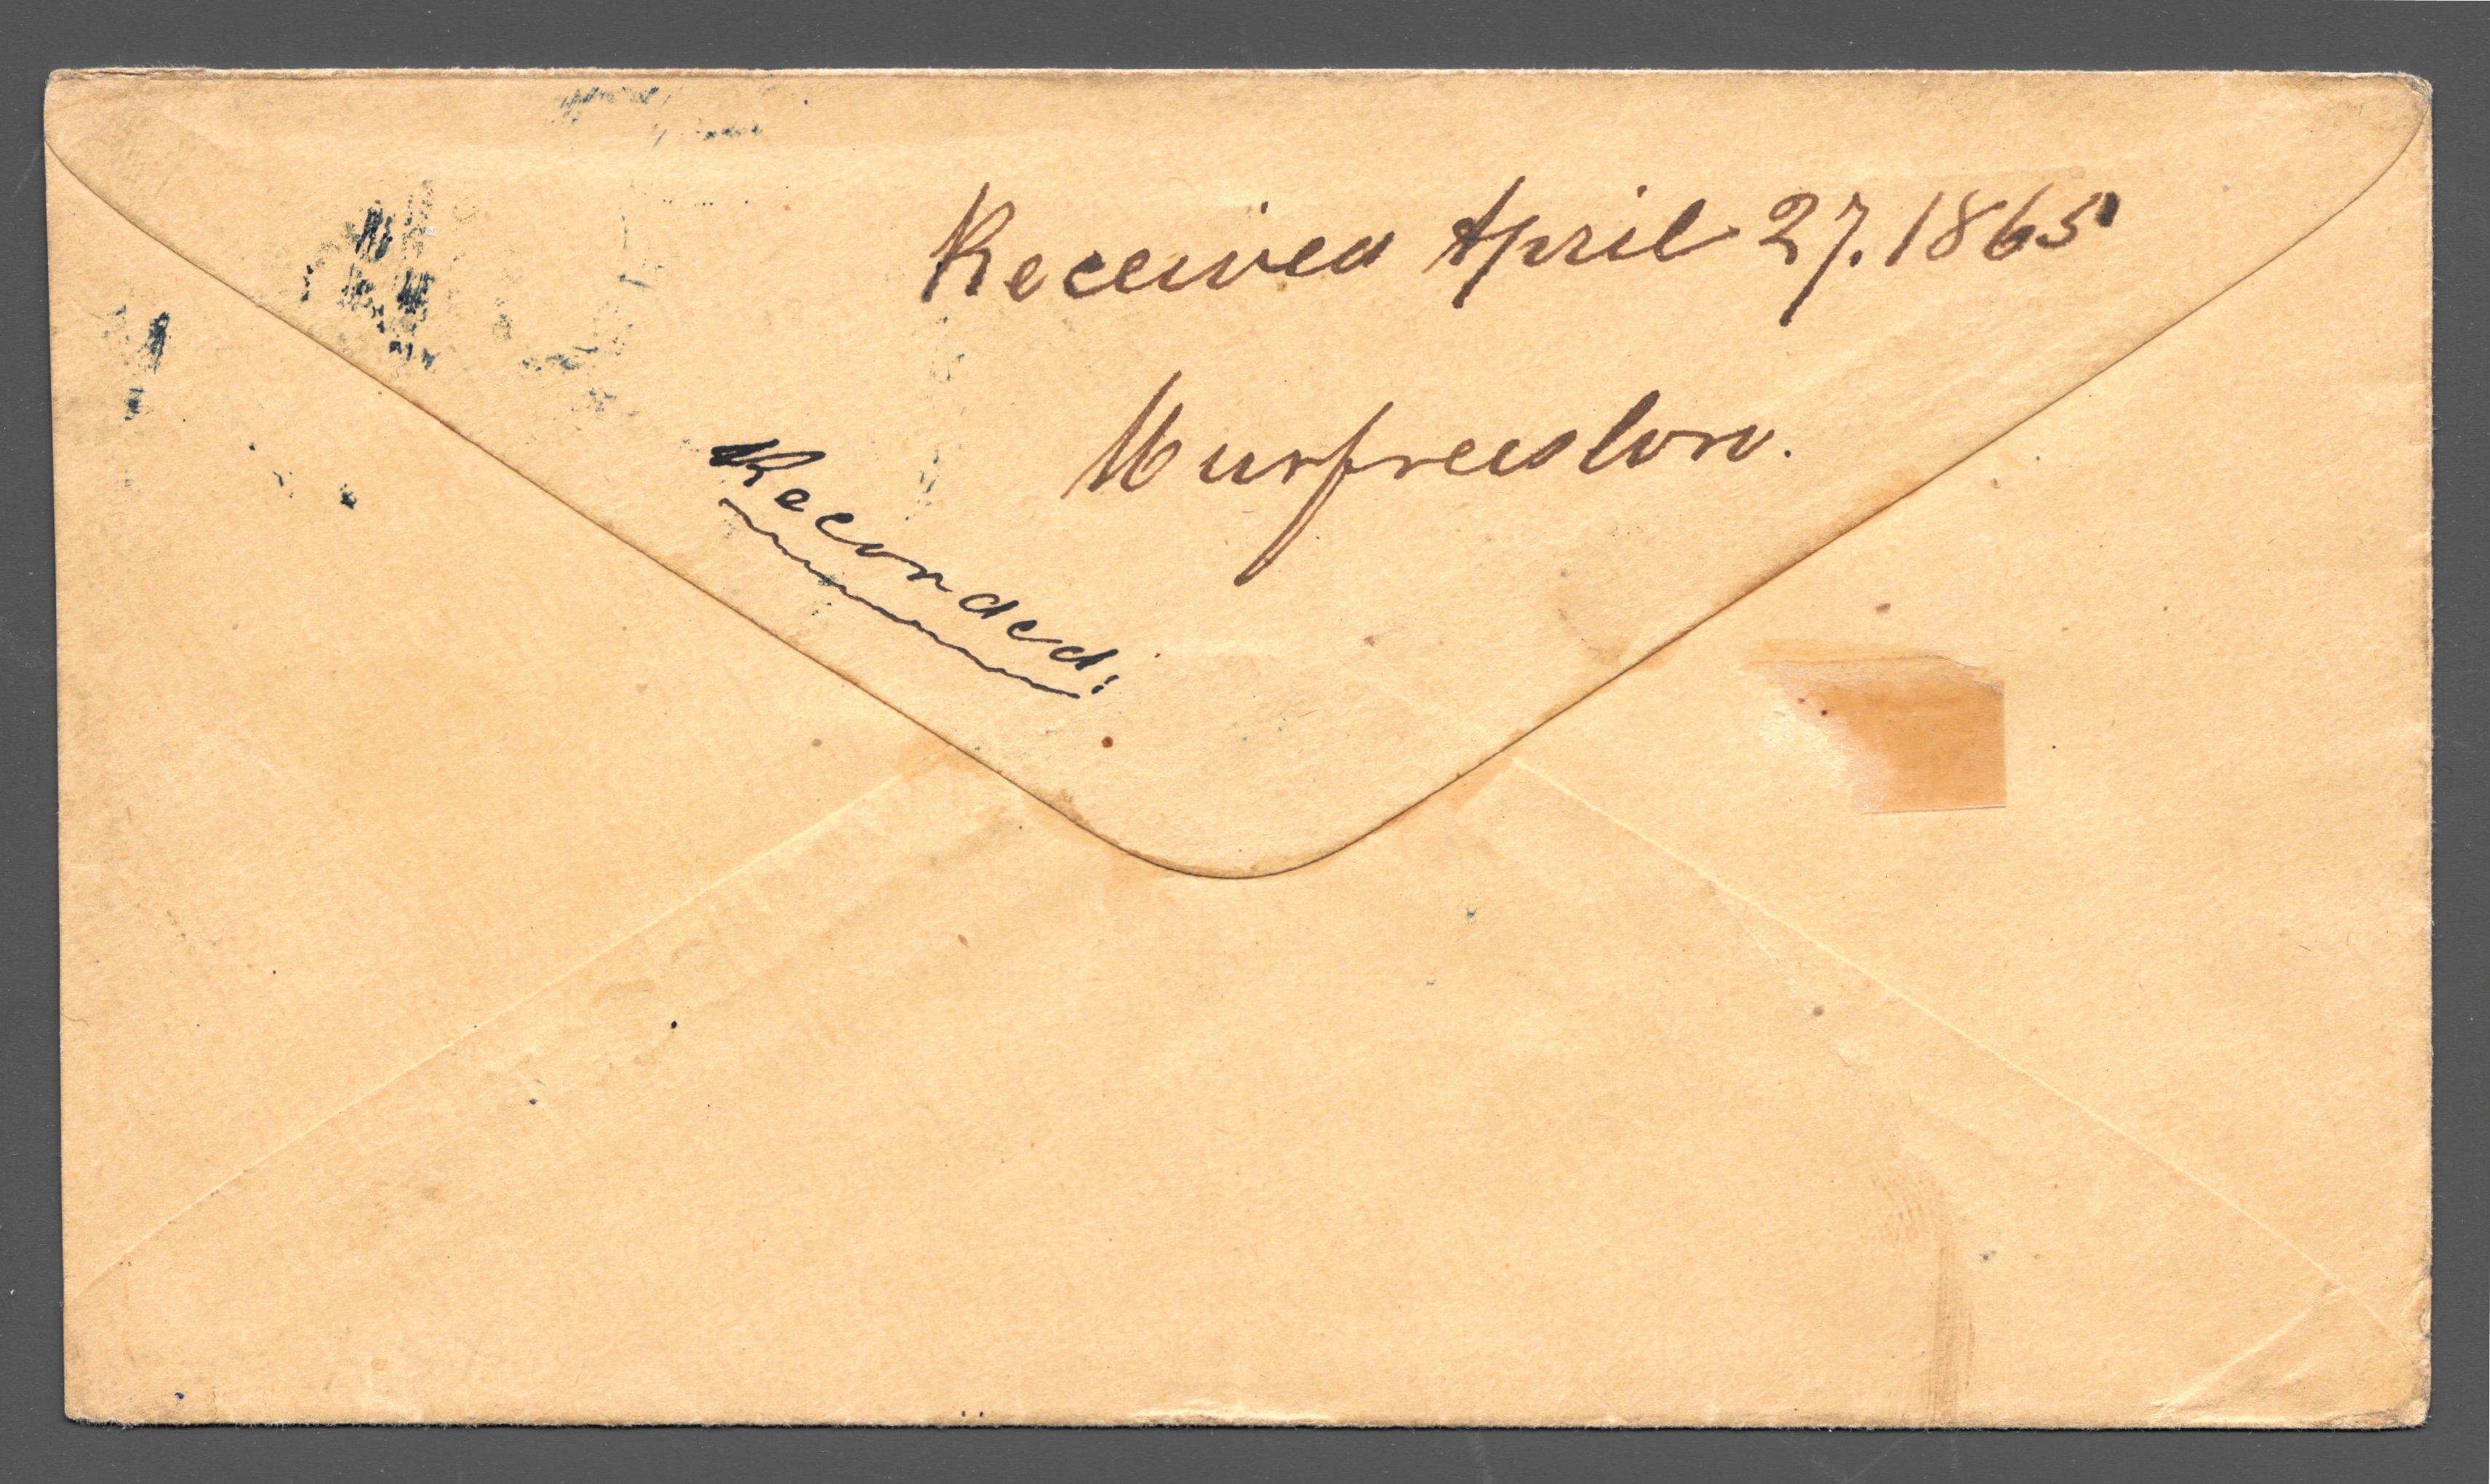 Received April 27. 1865
Murfreesboro.
Recorded.